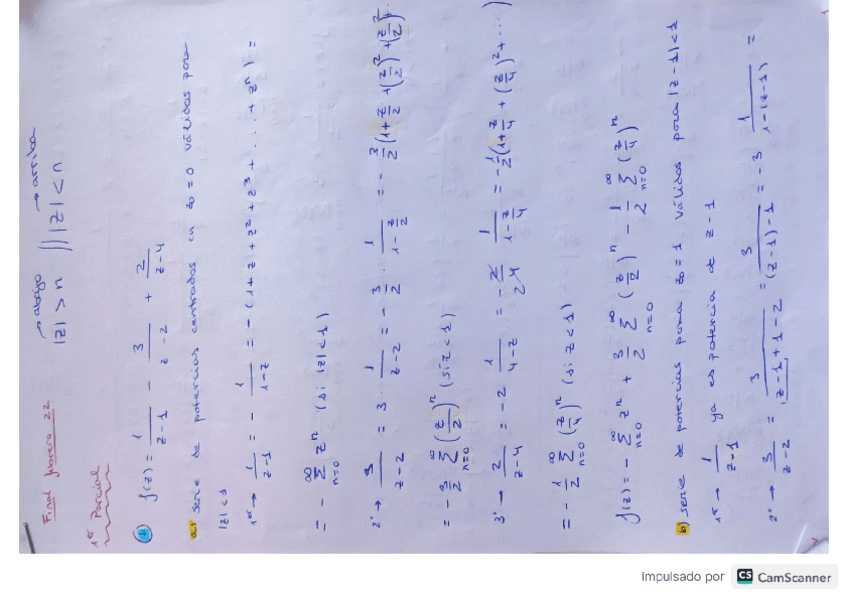 Final febrero 22
→ abajo → arriba
|z| > n || |z| < n
1er Parcial
1) f(z) = 1/(z-1) - 3/(z-2) + 2/(z-4)
a) serie de potencias centradas en z0 = 0 válidas para
|z| < 1
1er → 1/(z-1) = - 1/(1-z) = - (1 + z + z² + z³ + ... + zⁿ) =
= - ∑_{n=0}^{∞} zⁿ (si |z| < 1)
2º → 3/(z-2) = 3 · 1/(z-2) = - 3/2 · 1/(1 - z/2) = - 3/2 (1 + z/2 + (z/2)² + (z/2)³...
= - 3/2 ∑_{n=0}^{∞} (z/2)ⁿ (si z < 1)
3º → 2/(z-4) = -2 1/(4-z) = - 2/(2 4) 1/(1 - z/4) = - 1/2 (1 + z/4 + (z/4)² + ...)
= - 1/2 ∑_{n=0}^{∞} (z/4)ⁿ (si z < 1)
f(z) = - ∑_{n=0}^{∞} zⁿ + 3/2 ∑_{n=0}^{∞} (z/2)ⁿ - 1/2 ∑_{n=0}^{∞} (z/4)ⁿ
b) serie de potencias para z0 = 1 válidas para |z-1| < 1
1er → 1/(z-1) ya es potencia de z-1
2º → 3/(z-2) = 3/(z-1+1-2) = 3/((z-1)-1) = -3 1/(1-(z-1)) =
Impulsado por CS CamScanner